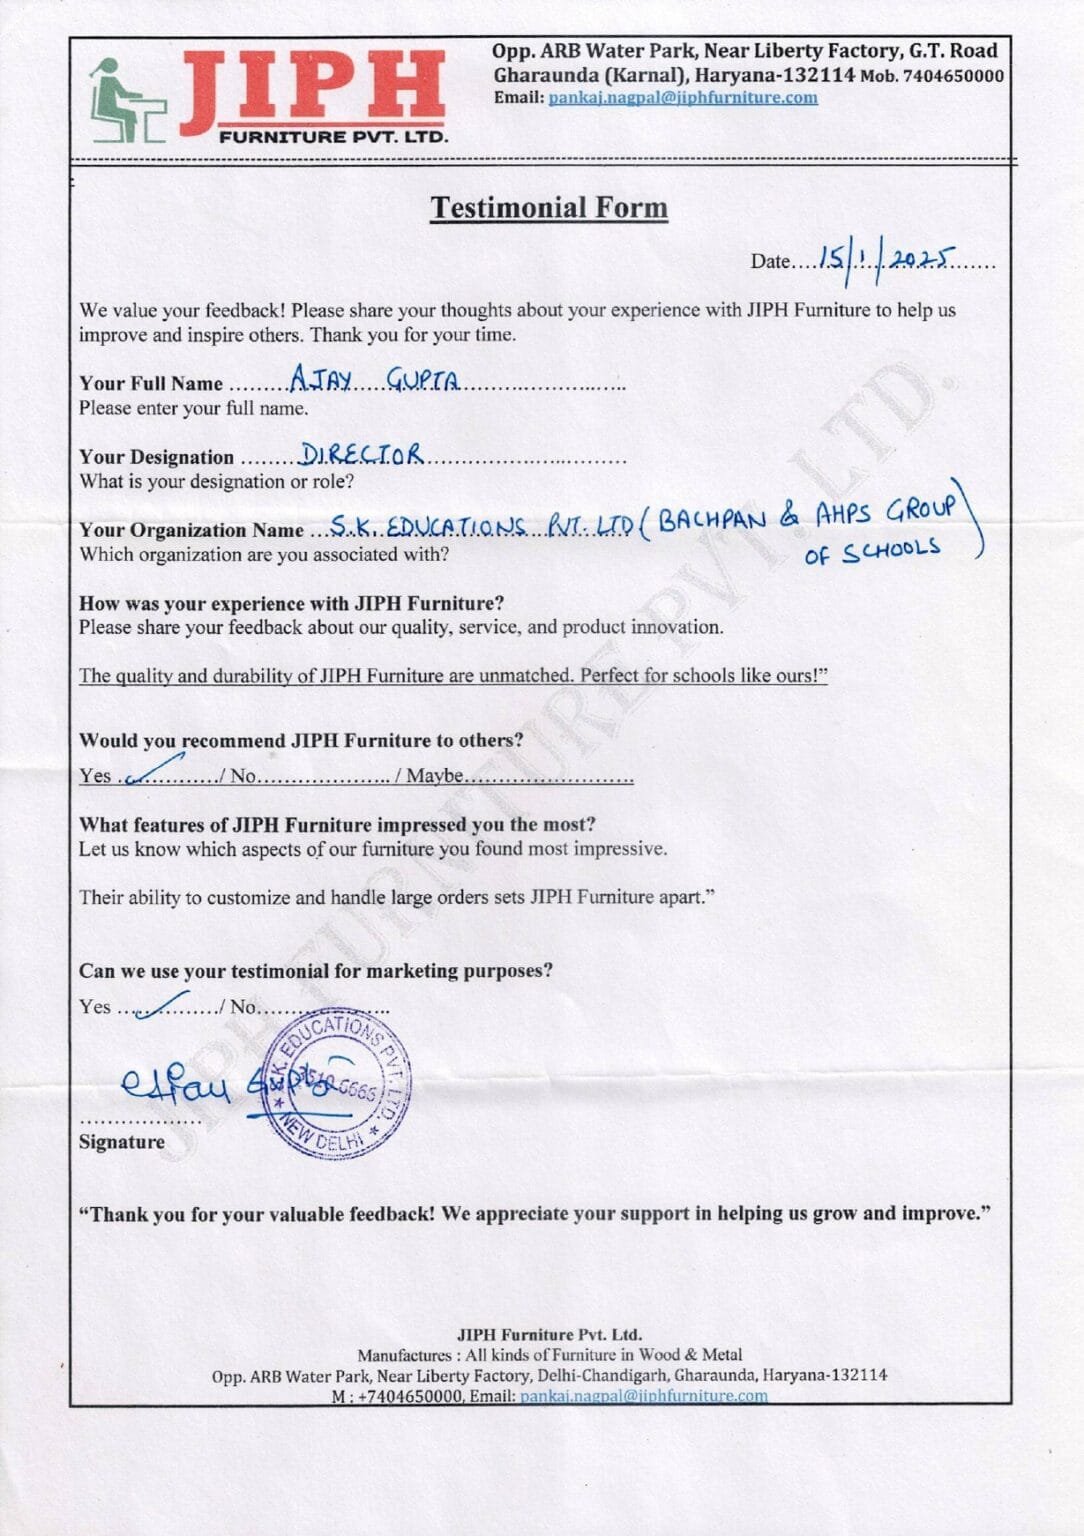 JIPH
FURNITURE PVT. LTD.
Opp. ARB Water Park, Near Liberty Factory, G.T. Road
Gharaunda (Karnal), Haryana-132114 Mob. 7404650000
Email: pankaj.nagpal@jiphfurniture.com
Testimonial Form
Date....15/1/2025.......
We value your feedback! Please share your thoughts about your experience with JIPH Furniture to help us
improve and inspire others. Thank you for your time.
Your Full Name .........AJAY....GUPTA...........................
Please enter your full name.
Your Designation ........DIRECTOR.................................
What is your designation or role?
Your Organization Name ...S.K. EDUCATIONS PVT. LTD (BACHPAN & AHPS GROUP
OF SCHOOLS)
Which organization are you associated with?
How was your experience with JIPH Furniture?
Please share your feedback about our quality, service, and product innovation.
The quality and durability of JIPH Furniture are unmatched. Perfect for schools like ours!”
Would you recommend JIPH Furniture to others?
Yes ..✓............/ No....................... / Maybe............................
What features of JIPH Furniture impressed you the most?
Let us know which aspects of our furniture you found most impressive.
Their ability to customize and handle large orders sets JIPH Furniture apart.”
Can we use your testimonial for marketing purposes?
Yes ....✓............/ No.......................
Ajay Gupta
S.K. EDUCATIONS PVT. LTD.
6666
★ NEW DELHI ★
...................
Signature
“Thank you for your valuable feedback! We appreciate your support in helping us grow and improve.”
JIPH Furniture Pvt. Ltd.
Manufactures : All kinds of Furniture in Wood & Metal
Opp. ARB Water Park, Near Liberty Factory, Delhi-Chandigarh, Gharaunda, Haryana-132114
M : +7404650000, Email: pankaj.nagpal@jiphfurniture.com
JIPH FURNITURE PVT. LTD.